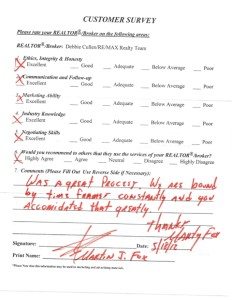 CUSTOMER SURVEY
Please rate your REALTOR®/Broker on the following areas:
REALTOR®/Broker: Debbie Cullen/RE/MAX Realty Team
1. Ethics, Integrity & Honesty
X Excellent __ Good __ Adequate __ Below Average __ Poor
2. Communication and Follow-up
X Excellent __ Good __ Adequate __ Below Average __ Poor
3. Marketing Ability
X Excellent __ Good __ Adequate __ Below Average __ Poor
4. Industry Knowledge
X Excellent __ Good __ Adequate __ Below Average __ Poor
5. Negotiating Skills
X Excellent __ Good __ Adequate __ Below Average __ Poor
6. Would you recommend to others that they use the services of your REALTOR®/broker?
X Highly Agree __ Agree __ Neutral __ Disagree __ Highly Disagree
7. Comments (Please Fill Out Use Reverse Side if Necessary):
WAS A great Process. We are bound
by time constantly and you
accomidated that greatly.
thanks
Marty Fox
Signature: Date:
Print Name: MARTIN J. FOX
*Please Note that this information may be used in marketing and advertising materials.